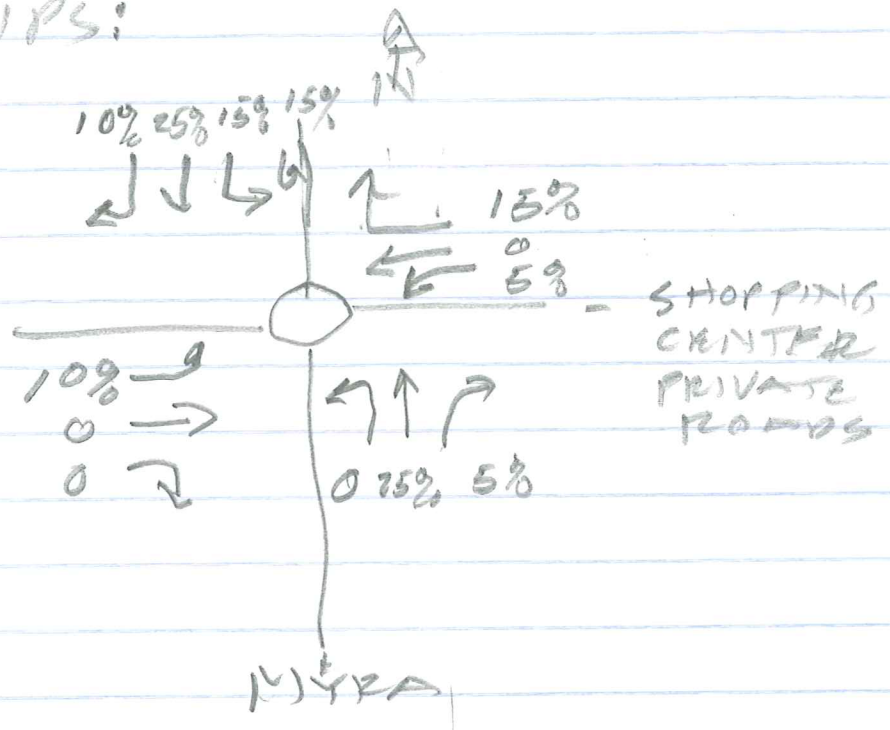 IPS:
N
10% 25% 15% 15%
15%
0
5%
SHOPPING
CENTER
PRIVATE
ROADS
10%
0
0
0 25% 5%
MYRA